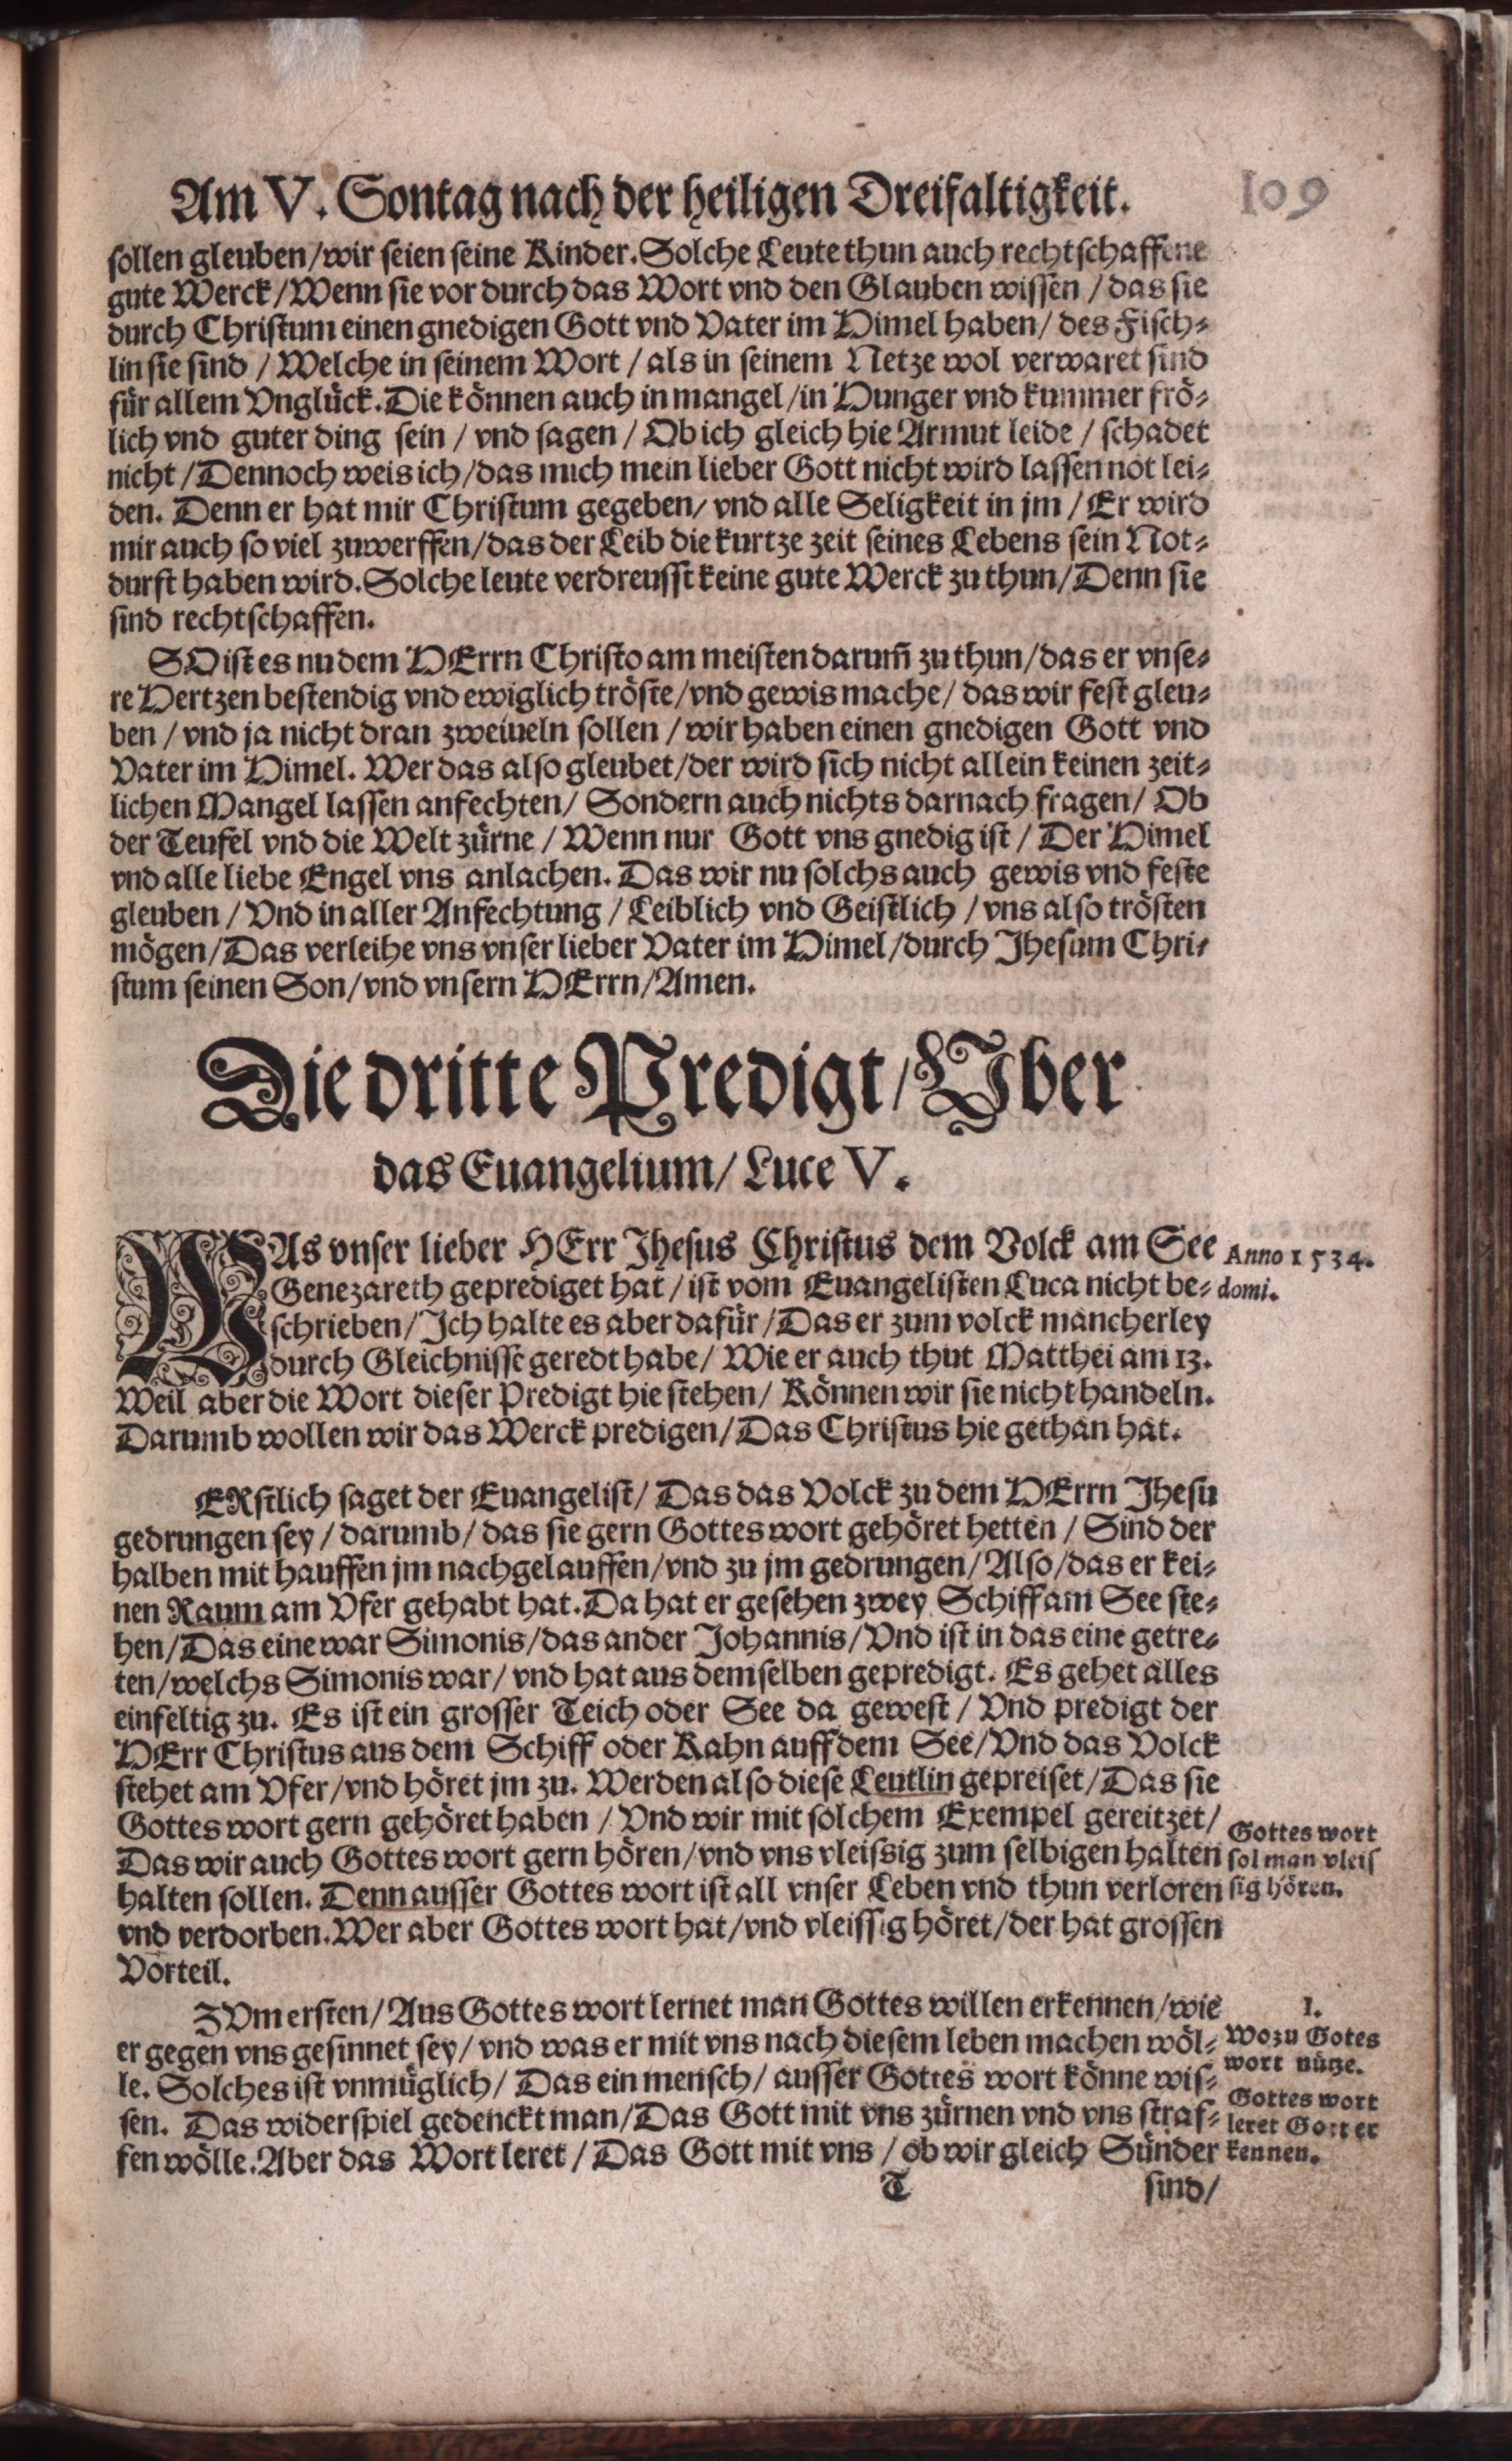 Am V. Sontag nach der heiligen Dreifaltigkeit. 109
sollen gleuben/wir seien seine Kinder. Solche Leute thun auch rechtschaffene
gute Werck/Wenn sie vor durch das Wort vnd den Glauben wissen/das sie
durch Christum einen gnedigen Gott vnd Vater im Himel haben/des Fisch-
lin sie sind/Welche in seinem Wort/als in seinem Netze wol verwaret sind
für allem Vnglück. Die können auch in mangel/in Hunger vnd kummer frö-
lich vnd guter ding sein/vnd sagen/Ob ich gleich hie Armut leide/schadet
nicht/Dennoch weis ich/das mich mein lieber Gott nicht wird lassen not lei-
den. Denn er hat mir Christum gegeben/vnd alle Seligkeit in jm/Er wird
mir auch so viel zuwerffen/das der Leib die kurtze zeit seines Lebens sein Not-
durft haben wird. Solche leute verdreusst keine gute Werck zu thun/Denn sie
sind rechtschaffen.
SO ist es nu dem HErrn Christo am meisten darum̃ zu thun/das er vnse-
re Hertzen bestendig vnd ewiglich tröste/vnd gewis mache/das wir fest gleu-
ben/vnd ja nicht dran zweiueln sollen/wir haben einen gnedigen Gott vnd
Vater im Himel. Wer das also gleubet/der wird sich nicht allein keinen zeit-
lichen Mangel lassen anfechten/Sondern auch nichts darnach fragen/Ob
der Teufel vnd die Welt zürne/Wenn nur Gott vns gnedig ist/Der Himel
vnd alle liebe Engel vns anlachen. Das wir nu solchs auch gewis vnd feste
gleuben/Vnd in aller Anfechtung/Leiblich vnd Geistlich/vns also trösten
mögen/Das verleihe vns vnser lieber Vater im Himel/durch Jhesum Chri-
stum seinen Son/vnd vnsern HErrn/Amen.
Die dritte Predigt/Vber
das Euangelium/Luce V.
WAs vnser lieber HErr Jhesus Christus dem Volck am See
Genezareth geprediget hat/ist vom Euangelisten Luca nicht be-
schrieben/Ich halte es aber dafür/Das er zum volck mancherley
durch Gleichnisse geredt habe/Wie er auch thut Matthei am 13.
Weil aber die Wort dieser Predigt hie stehen/Können wir sie nicht handeln.
Darumb wollen wir das Werck predigen/Das Christus hie gethan hat.
Anno 1534.
domi.
ERstlich saget der Euangelist/Das das Volck zu dem HErrn Jhesu
gedrungen sey/darumb/das sie gern Gottes wort gehöret hetten/Sind der
halben mit hauffen jm nachgelauffen/vnd zu jm gedrungen/Also/das er kei-
nen Raum am Vfer gehabt hat. Da hat er gesehen zwey Schiff am See ste-
hen/Das eine war Simonis/das ander Johannis/Vnd ist in das eine getre-
ten/welchs Simonis war/vnd hat aus demselben gepredigt. Es gehet alles
einfeltig zu. Es ist ein grosser Teich oder See da gewest/Vnd predigt der
HErr Christus aus dem Schiff oder Kahn auff dem See/Vnd das Volck
stehet am Vfer/vnd höret jm zu. Werden also diese Leutlin gepreiset/Das sie
Gottes wort gern gehöret haben/Vnd wir mit solchem Exempel gereitzet/
Das wir auch Gottes wort gern hören/vnd vns vleissig zum selbigen halten
halten sollen. Denn ausser Gottes wort ist all vnser Leben vnd thun verloren
vnd verdorben. Wer aber Gottes wort hat/vnd vleissig höret/der hat grossen
Vorteil.
Gottes wort
sol man vleis
sig hören.
ZVm ersten/Aus Gottes wort lernet man Gottes willen erkennen/wie
er gegen vns gesinnet sey/vnd was er mit vns nach diesem leben machen wöl-
le. Solches ist vnmüglich/Das ein mensch/ausser Gottes wort könne wis-
sen. Das widerspiel gedenckt man/Das Gott mit vns zürnen vnd vns straf-
fen wölle. Aber das Wort leret/Das Gott mit vns/ob wir gleich Sünder
1.
Wozu Gotes
wort nütze.
Gottes wort
leret Gott er
kennen.
T sind/